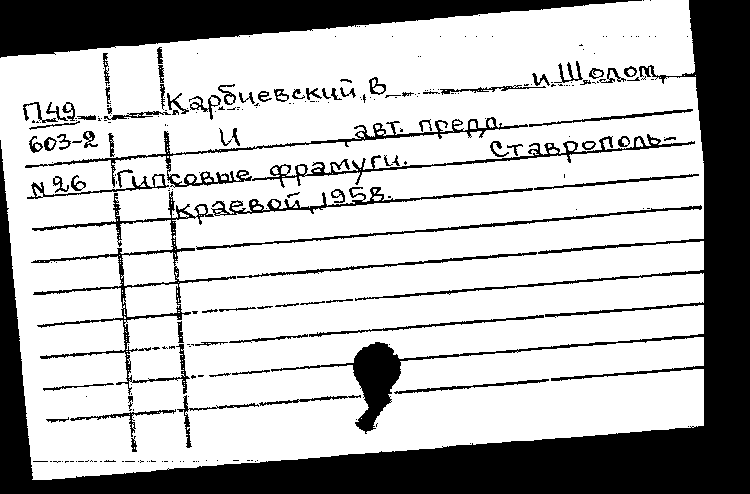 П49 Карбиевский, В и Шолом,
603-2 И , авт. предл.
N 26 Гипсовые фрамуги. Ставрополь-
краевой, 1958.